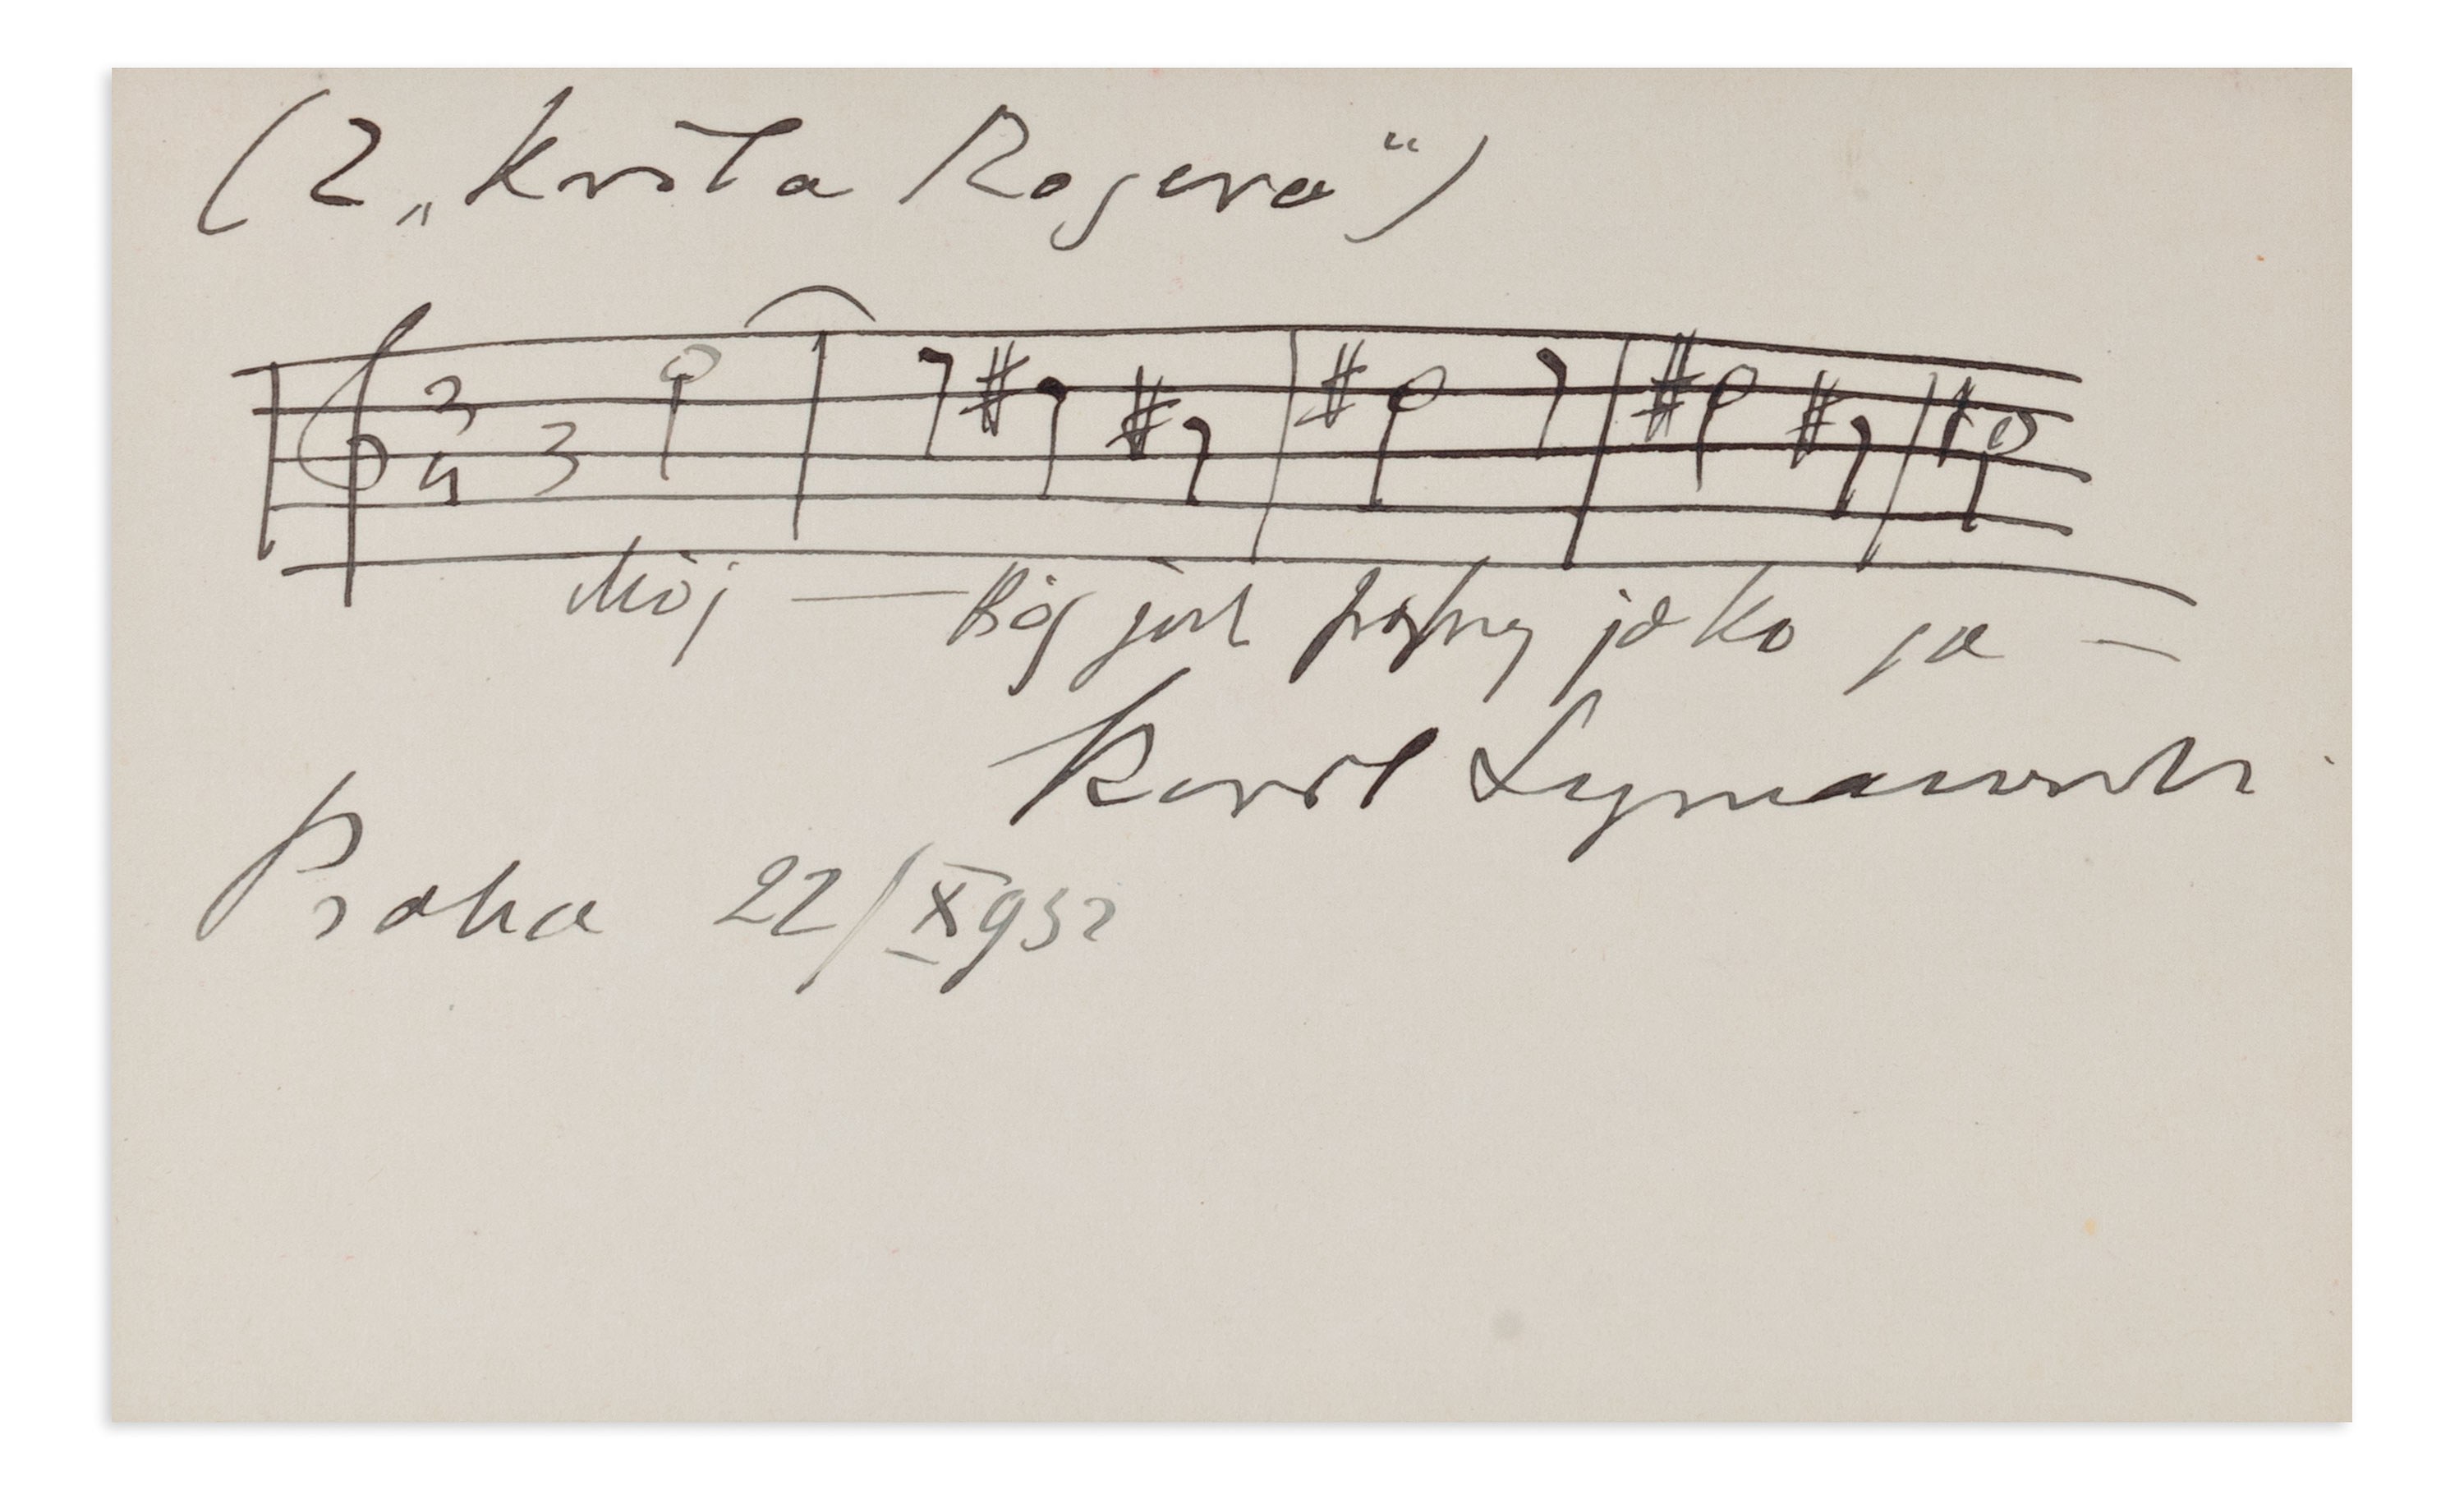 (Z „Króla Rogera“)
3
4
Mój — Bóg jest piękny jako ja —
Karol Szymanowski
Praha 22/X 932